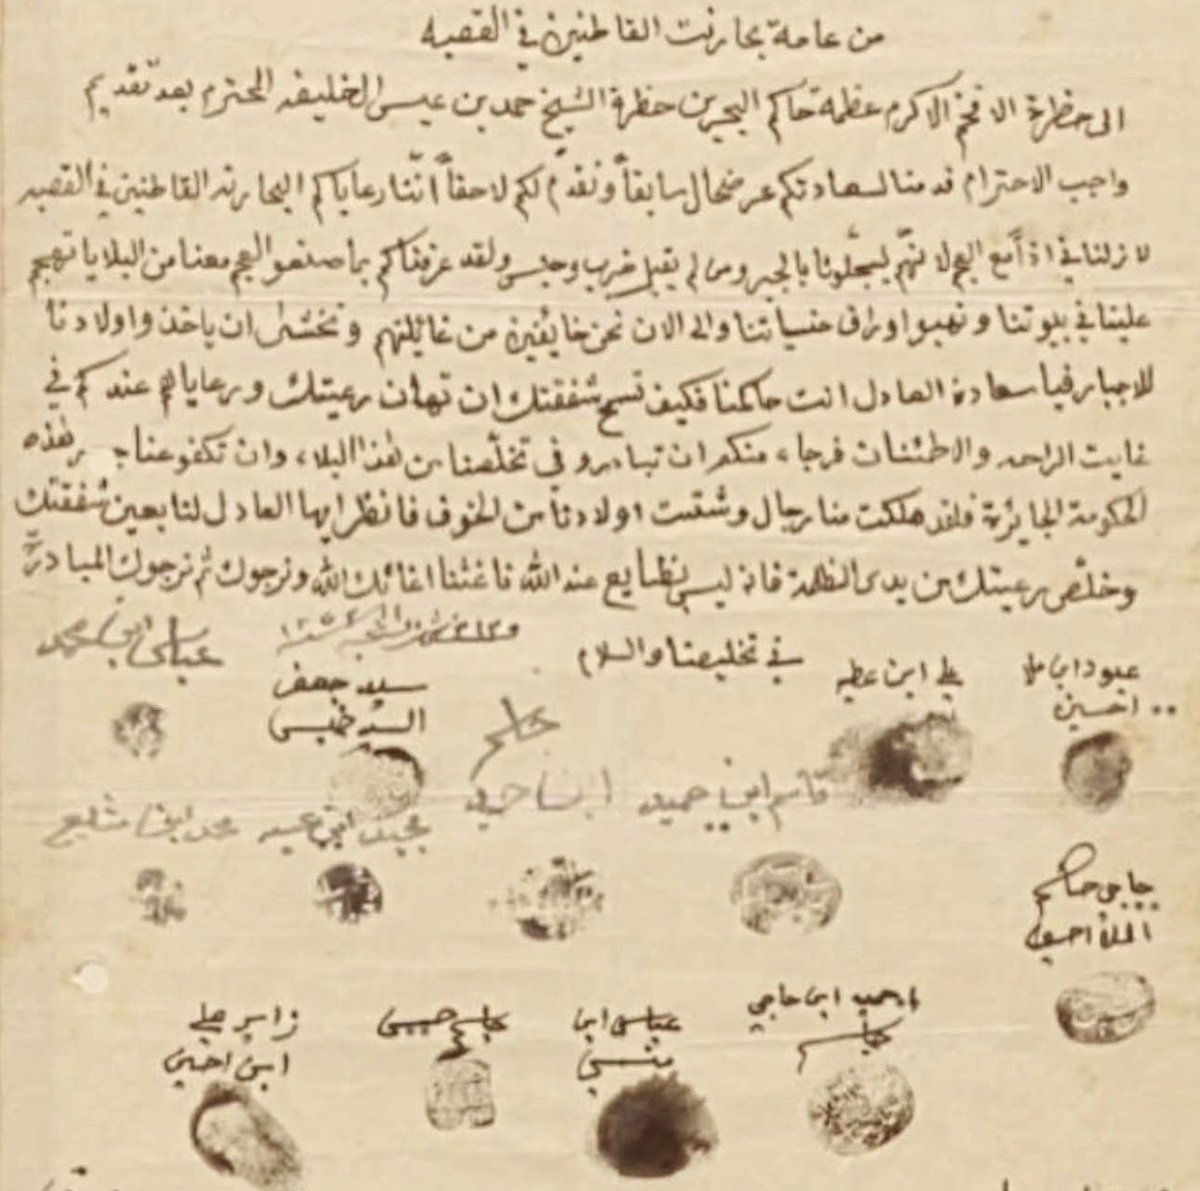 من عامة بحارنت القاطنين في القصبه
الى حظرة الافخم الاكرم عظمة حاكم البحرين حظرة الشيخ حمد بن عيسى الخليفه المحترم بعد تقديم
واجب الاحترام قدمنا لسعادتكم عرضحال سابقاً ونقدم لكم لاحقاً اننا رعاياكم البحارنه القاطنين في القصبه
لازلنا في اذا مع العجم لانهم ليسجلونا بالجبر ومن لم يقبل ضرب وحبس ولقد عرفناكم بما صنعو العجم معنا من البلايا تهجم
علينا في بيوتنا ونهبو اوراق جنسياتنا والى الان نحن خايفين من غايلتهم ونخشى ان ياخذو اولادنا
للاجبار فيا سعادة العادل انت حاكمنا فكيف تسمح شفقتك ان تهان رعيتك ورعاياهم عندكم في
غايت الراحه والاطمئنان فرجاء منكم ان تبادرو في تخلصنا من هذا البلاء وان تكفو عنا هذه
الحكومة الجايرة فلقد هلكت منا رجال وشقت اولادنا من الخوف فانظر ايها العادل لتابعين شفقتك
وخلص رعيتك من يدى الظلمة فانه ليس بضايع عند الله فاغثنا اغاثك الله ونرجوك ثم نرجوك المبادرة
في تخليصنا والسلام
عبود ابن ملا احسين
علي ابن عطيه
سيد جعفر السيد خميس
عباس ابن محمد
جاسم
قاسم ابن حميد
محمد ابن
حاجي جاسم الملا احسين
ابن حاجي جاسم
عباس ابن
جاسم حسين
زاير علي ابن احسين